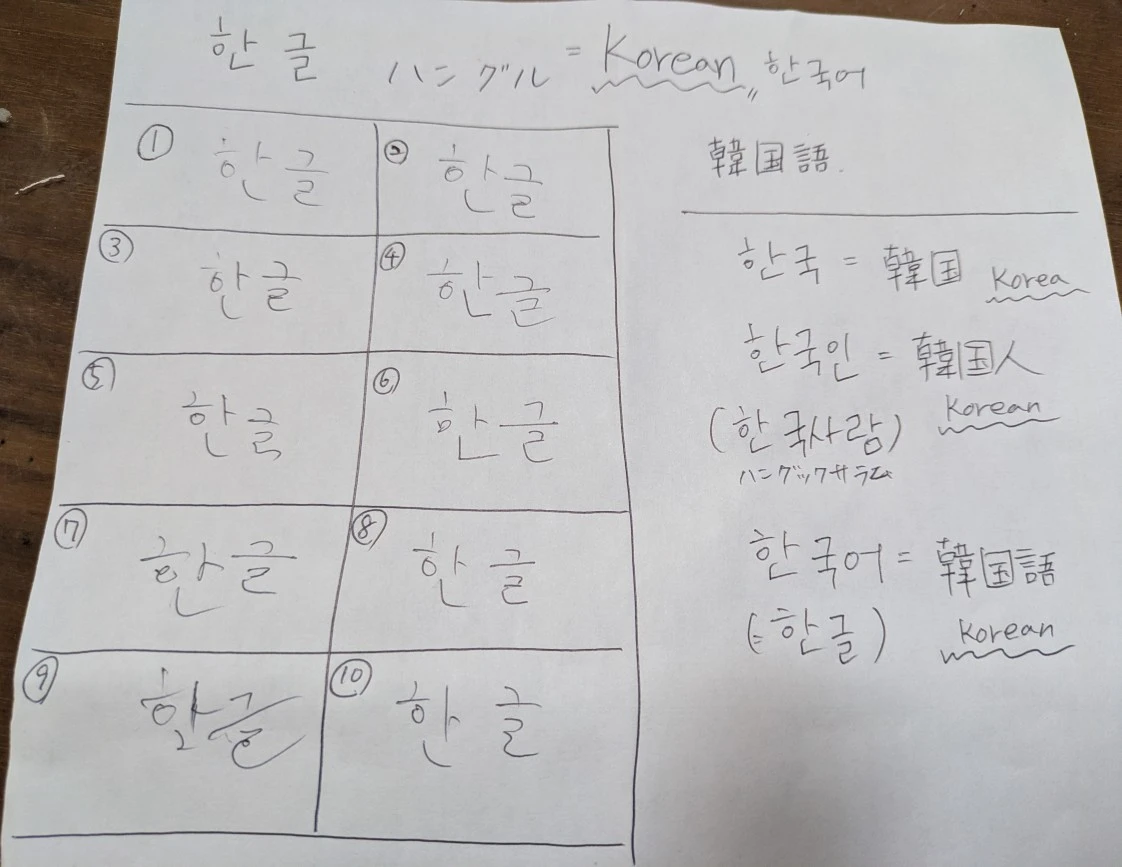 한글 ハングル = Korean 〃 한국어
① 한글 ② 한글
③ 한글 ④ 한글
⑤ 한글 ⑥ 한글
⑦ 한글 ⑧ 한글
⑨ 한글 ⑩ 한글
韓国語.
한국 = 韓国 Korea
한국인 = 韓国人
(한국사람) Korean
ハングックサラム
한국어 = 韓国語
(=한글) Korean